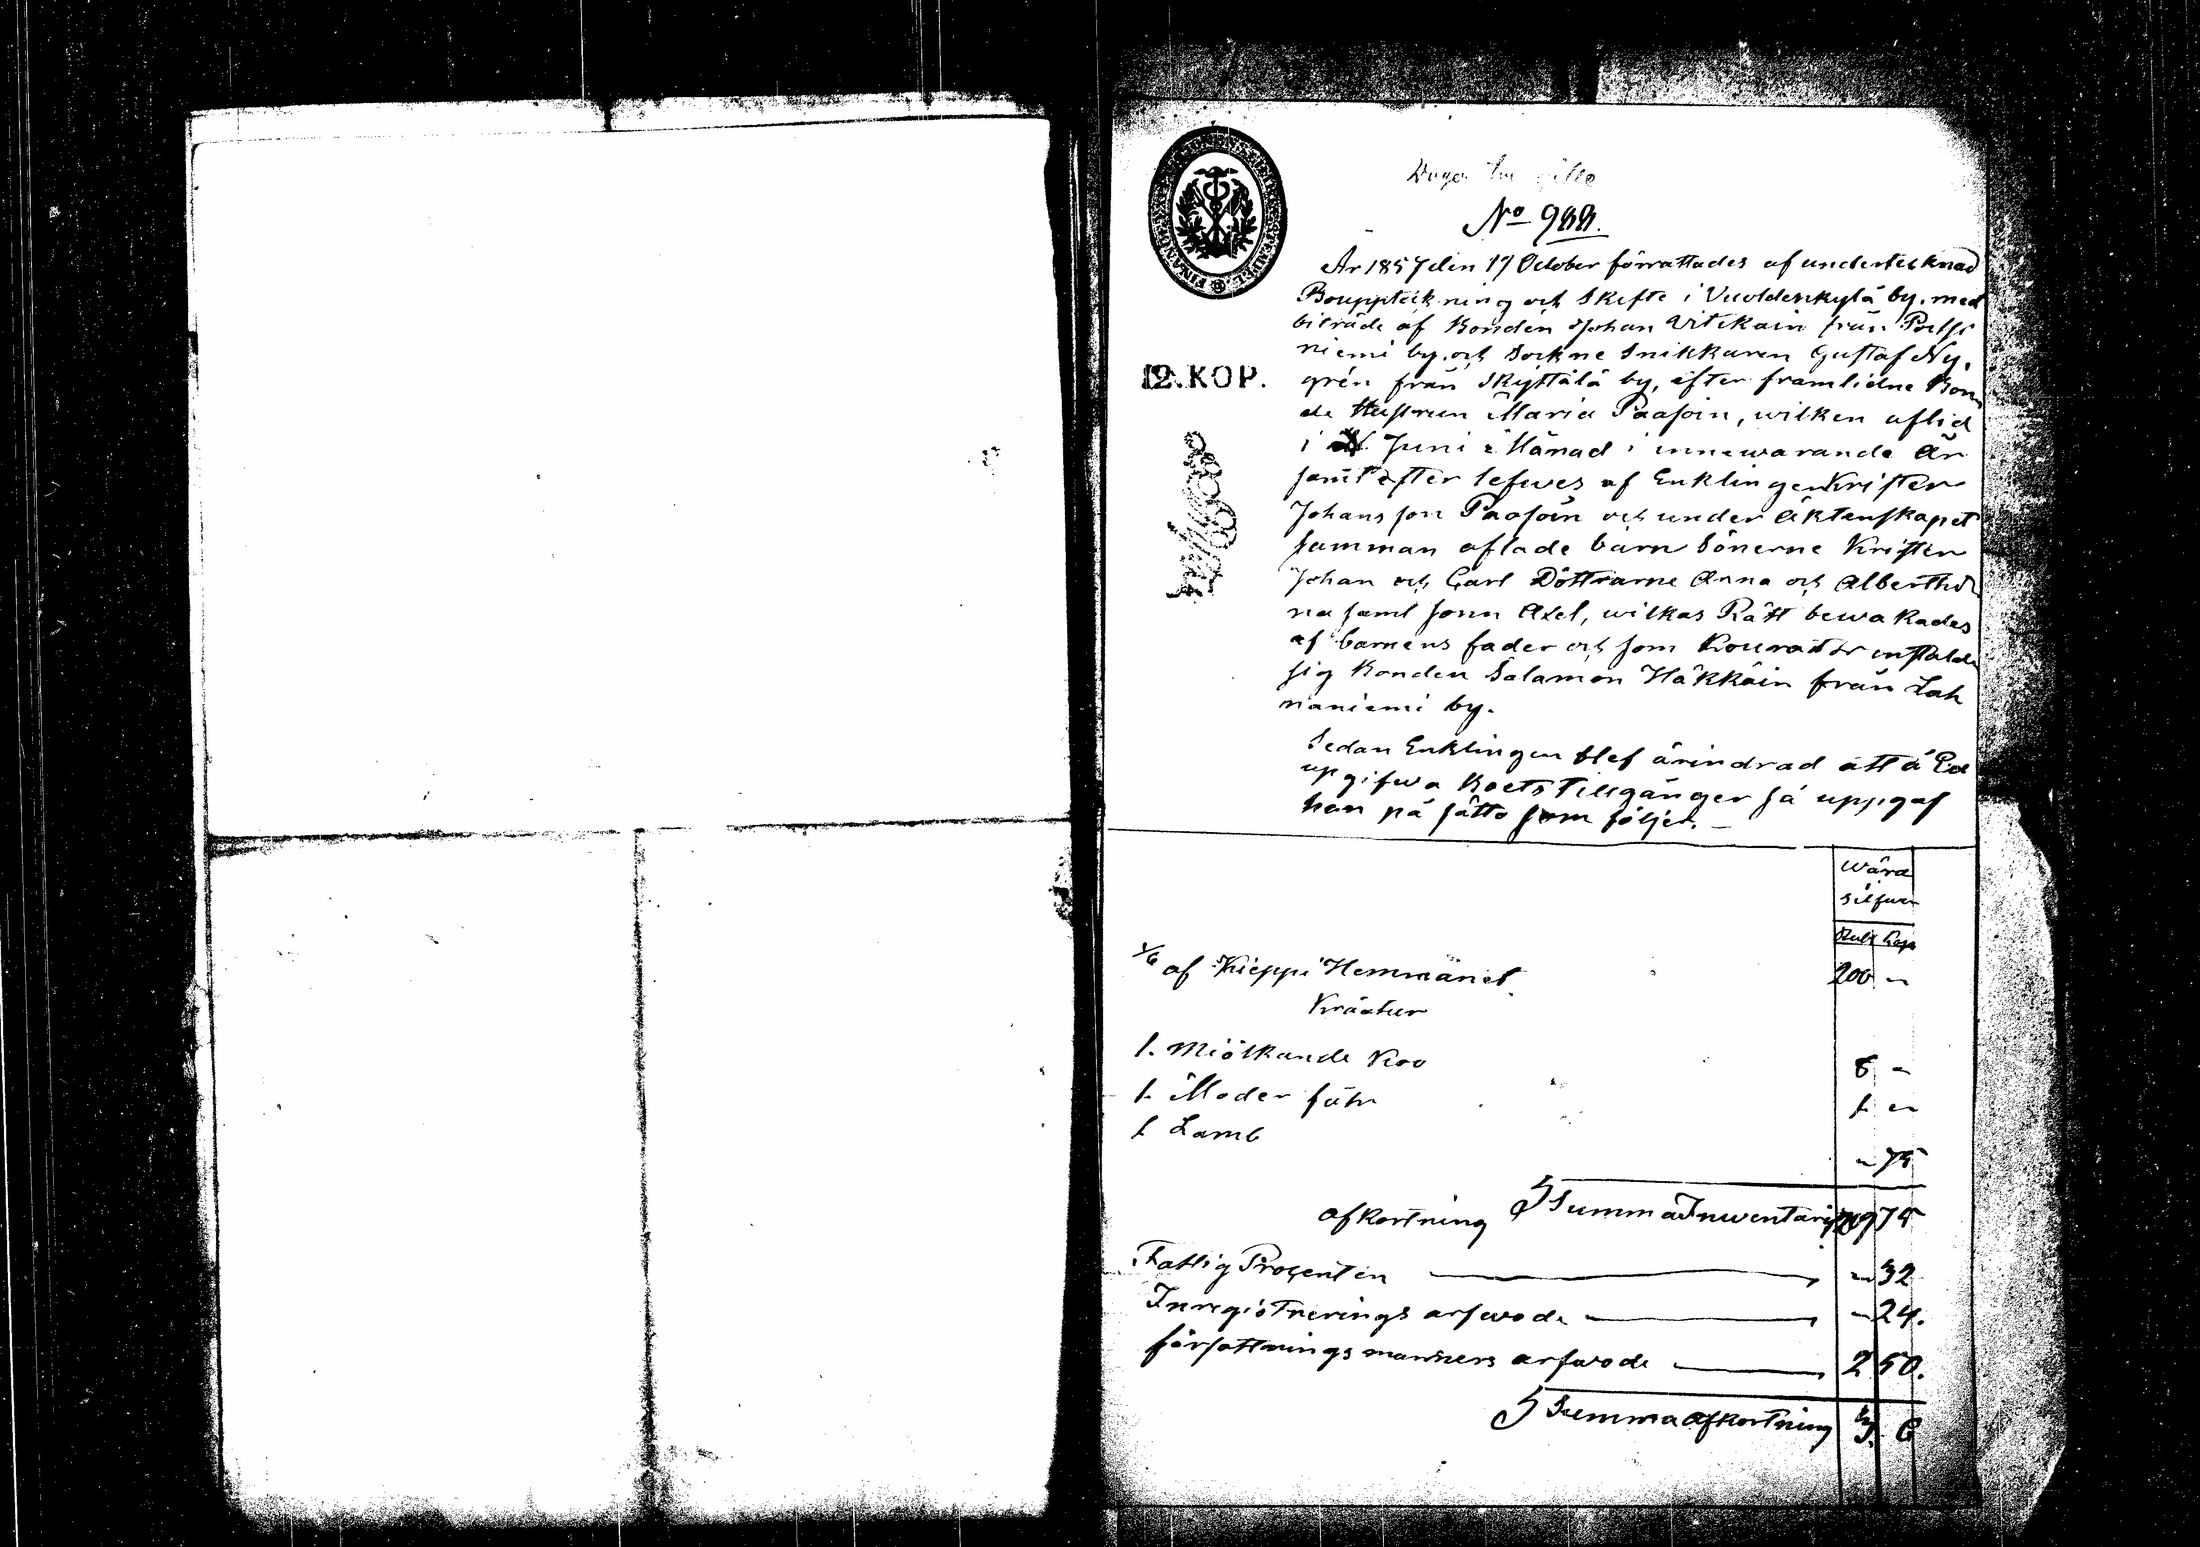 No 988.
År 1857 den 17 October förrattades af undertecknad
Bouppteckning och Skifte i Vuoldenkylä by. med
biträde af Bonden Johan Vitikain från
niemi by. och Sockne Snikkaren Gustaf Ny,
grén från Skyttälä by, efter framlidne Bon,
de Hustrun Maria Paasoin, wilken aflid
i Juni Månad i innewarande År
samt efter lefwes af Enklingen Krister
Johansson Paasoin och under Äktenskapet
samman aflade barn Sönerne Krister
Johan och Carl Döttrarne Anna och Alberthi
na samt sonn Axel, wilkas Rätt bewakades
af barnens fader och som Kourator instälde
sig Bonden Salamon Häkkäin från Lah
naniemi by.
Sedan Enklingen blef ärindrad att å Ed
upgifwa Boets Tillgånger så uppgaf
han på sätto som följer. —
12. KOP.
Wärd
Silfwer
Rub Kop
1/6 af Kieppi Hemmanet. 200 "
Kräatur
1. Miölkande Koo 8 "
1. Moder fåhr 1 "
1 Lamb " 75
Summa Inventarium 209 75
afkortning
Fattig Procenten — " 32
Inregistrerings arfwode — " 24.
författnings mannens arfwode — 2 50.
Summa Afkortning 3. 6